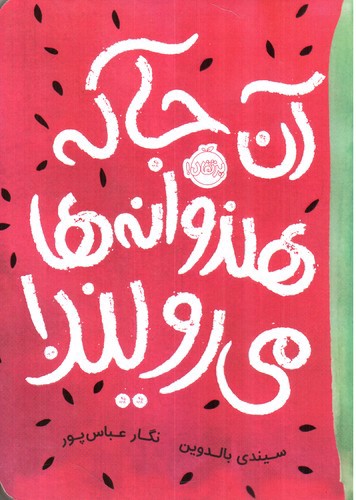 آن جا که
پرتقال
هندوانه‌ها
می‌رویند!
سیندی بالدوین  نگار عباس‌پور